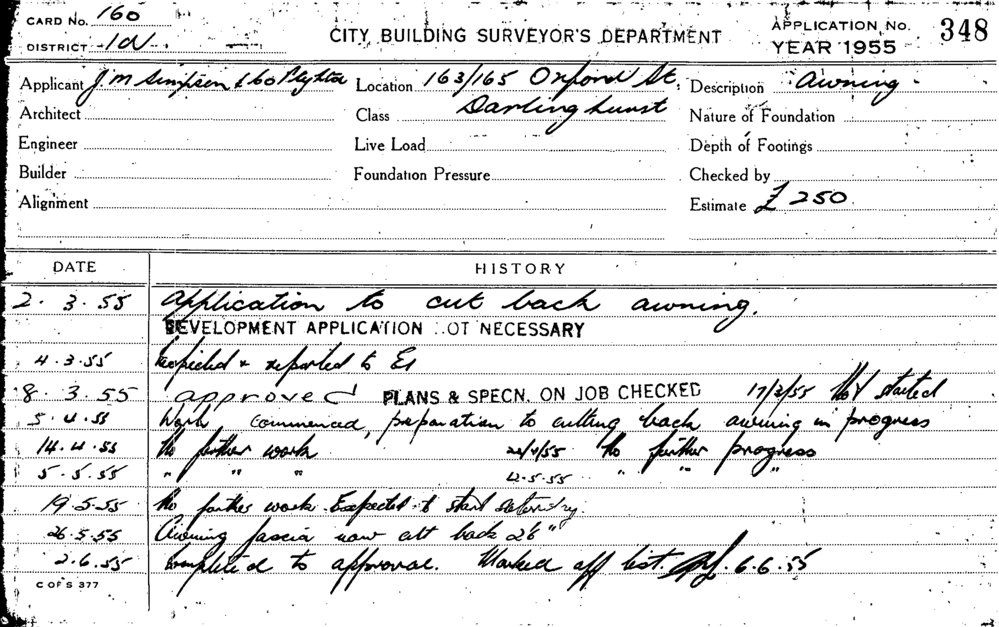 CARD No. 160
DISTRICT
CITY BUILDING SURVEYOR'S DEPARTMENT
APPLICATION No. 348
YEAR 1955
Applicant J. M Simpson & Co Pty Ltd Location 163/165 Oxford St, Description Awning
Architect Class Darlinghurst Nature of Foundation
Engineer Live Load Depth of Footings
Builder Foundation Pressure Checked by
Alignment Estimate £250
DATE HISTORY
2.3.55 Application to cut back awning.
DEVELOPMENT APPLICATION NOT NECESSARY
4.3.55 Inspected & reported to
8.3.55 approved PLANS & SPECN. ON JOB CHECKED 17/3/55 Not started
5.4.55 Work commenced, preparation to cutting back awning in progress
14.4.55 No further work 22/4/55 No further progress
5.5.55 " " " 12.5.55 " " "
19.5.55 No further work. Expected to start Saturday.
26.5.55 Awning fascia now cut back 26"
2.6.55 Completed to approval. Marked off list. 6.6.55
C OF S 377